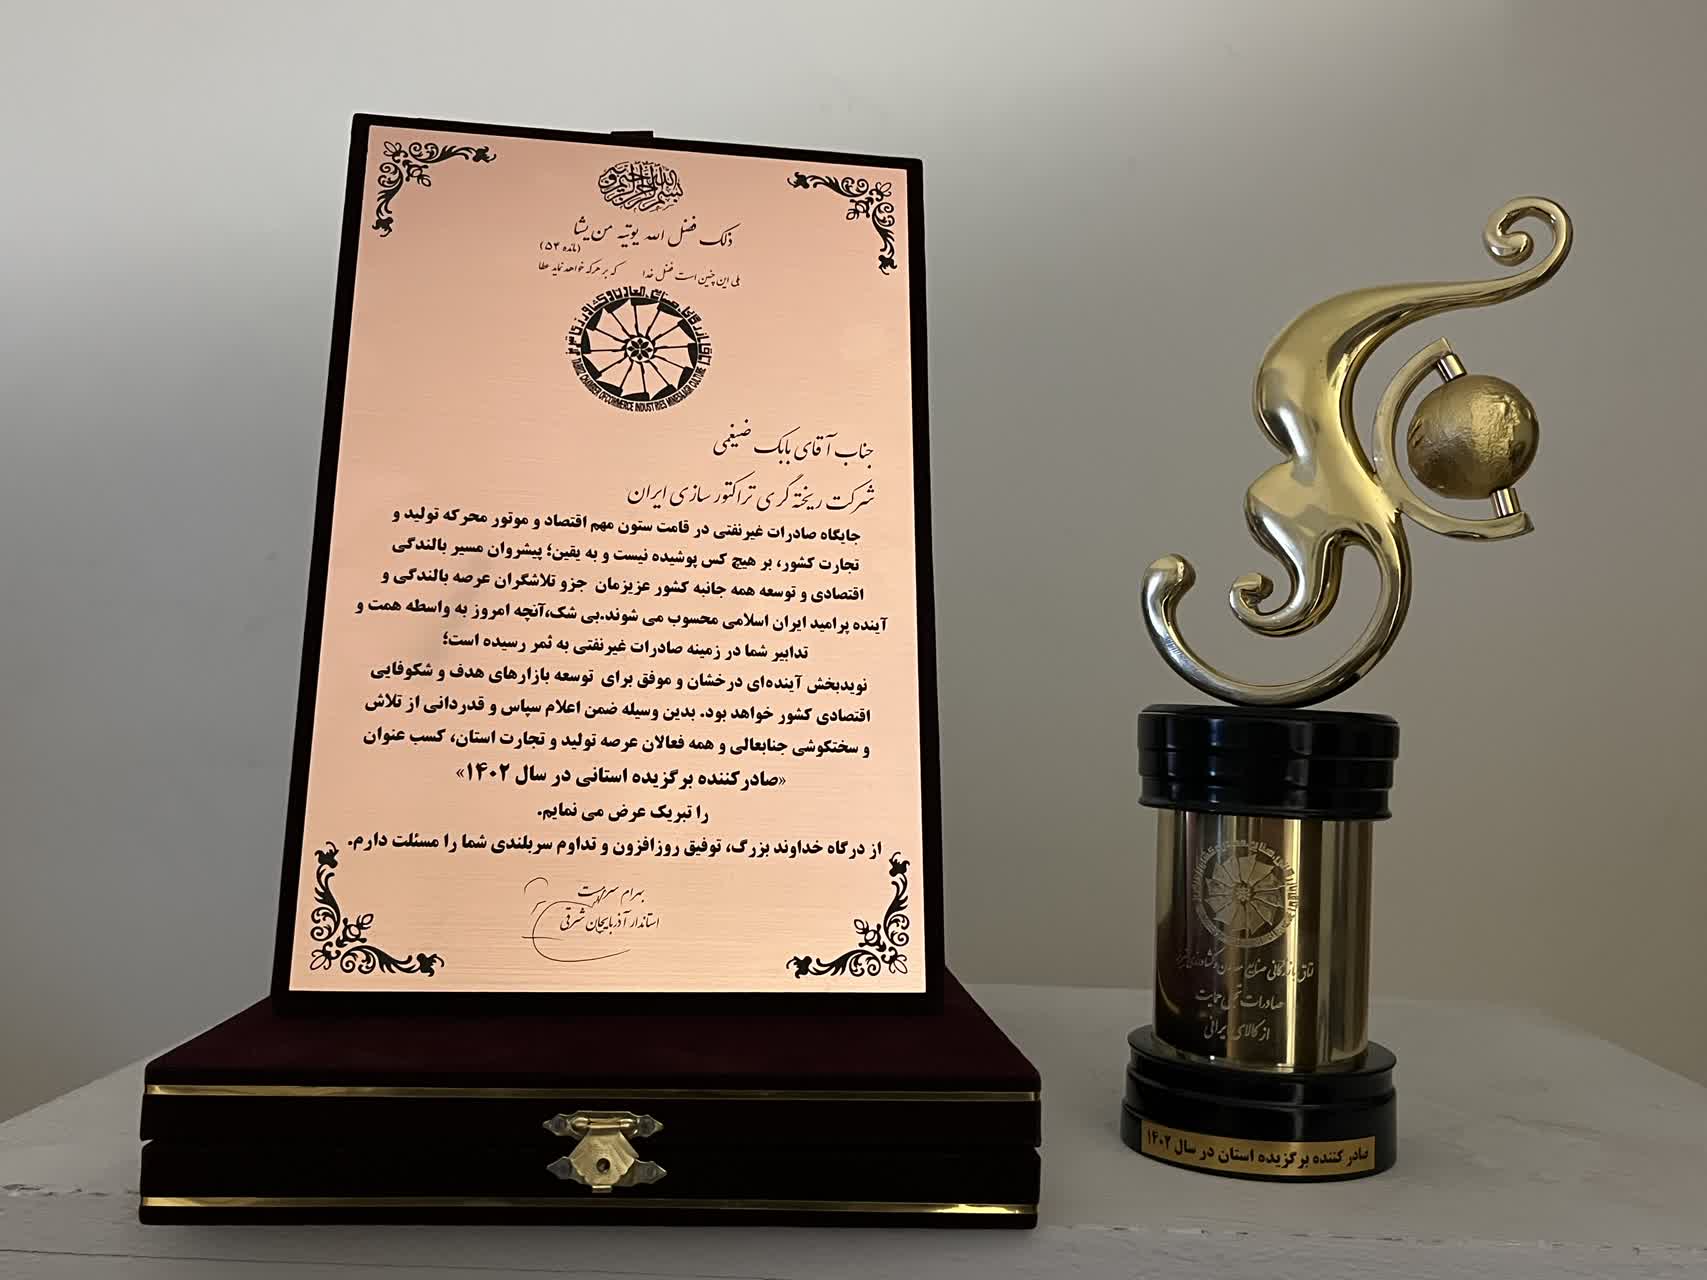 بسم الله الرحمن الرحیم
ذلک فضل الله یوتیه من یشا
(مائده ۵۴)
بلی این چنین است فضل خدا که بر هرکه خواهد نماید عطا
TABRIZ CHAMBER OFCOMMERCE INDUSTRIES MINES&AGRI CULTURE
جناب آقای بابک ضیغمی
شرکت ریخته گری تراکتور سازی ایران
جایگاه صادرات غیرنفتی در قامت ستون مهم اقتصاد و موتور محرکه تولید و
تجارت کشور، بر هیچ کس پوشیده نیست و به یقین؛ پیشروان مسیر بالندگی
اقتصادی و توسعه همه جانبه کشور عزیزمان جزو تلاشگران عرصه بالندگی و
آینده پرامید ایران اسلامی محسوب می شوند.بی شک،آنچه امروز به واسطه همت و
تدابیر شما در زمینه صادرات غیرنفتی به ثمر رسیده است؛
نویدبخش آینده‌ای درخشان و موفق برای توسعه بازارهای هدف و شکوفایی
اقتصادی کشور خواهد بود. بدین وسیله ضمن اعلام سپاس و قدردانی از تلاش
و سختکوشی جنابعالی و همه فعالان عرصه تولید و تجارت استان، کسب عنوان
«صادرکننده برگزیده استانی در سال ۱۴۰۲»
را تبریک عرض می نمایم.
از درگاه خداوند بزرگ، توفیق روزافزون و تداوم سربلندی شما را مسئلت دارم.
بهرام سرمست
استاندار آذربایجان شرقی
اتاق بازرگانی صنایع معادن و کشاورزی تبریز
صادرات تجلی حمایت
از کالای ایرانی
صادر کننده برگزیده استان در سال ۱۴۰۲